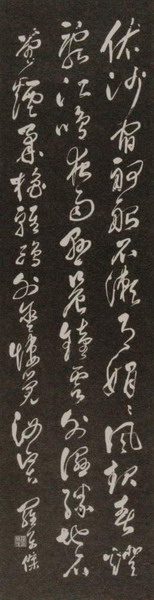 依沙宿舸船石瀨月娟々風起春燈
亂江鳴夜雨懸晨鐘雲外濕勝地石
堂煙柔櫓輕鷗外含悽覺汝賢 羅傑